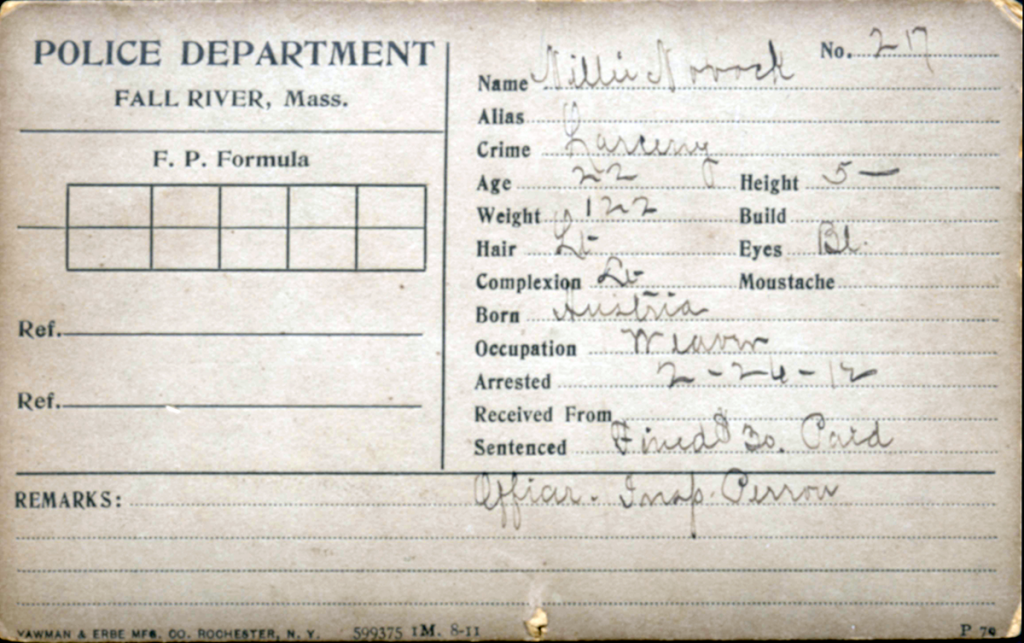 POLICE DEPARTMENT
FALL RIVER, Mass.
F. P. Formula
Ref.
Ref.
No. 217
Name Nillie Novock
Alias
Crime Larceny
Age 22 Height 5 —
Weight 122 Build
Hair Lt- Eyes Bl.
Complexion Lt- Moustache
Born Austria
Occupation Weaver
Arrested 2-26-12
Received From
Sentenced Fined $30. Paid
REMARKS: Officer. Insp. Perron
YAWMAN & ERBE MFG. CO. ROCHESTER, N. Y. 599375 1M. 8-11 P 78